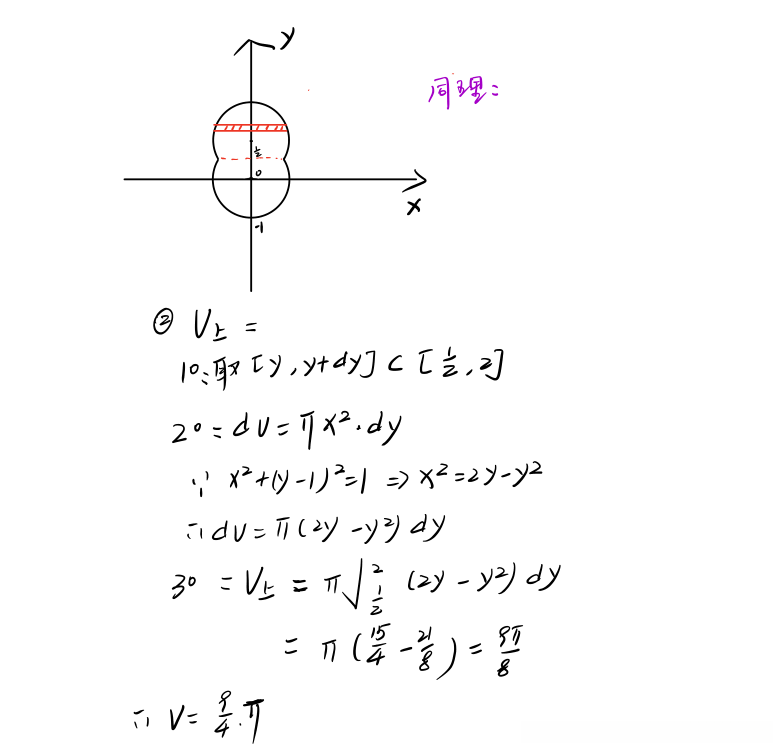 y
同理:
1/2
0
x
-1
② V上 =
1°: 取 [y, y+dy] ⊂ [1/2, 2]
2°: dV = πx²·dy
∵ x²+(y-1)²=1 ⇒ x²=2y-y²
∴ dV = π(2y-y²) dy
3°: V上 = π∫_{1/2}^{2} (2y-y²) dy
= π(15/4 - 21/8) = 9π/8
∴ V = 9/4·π